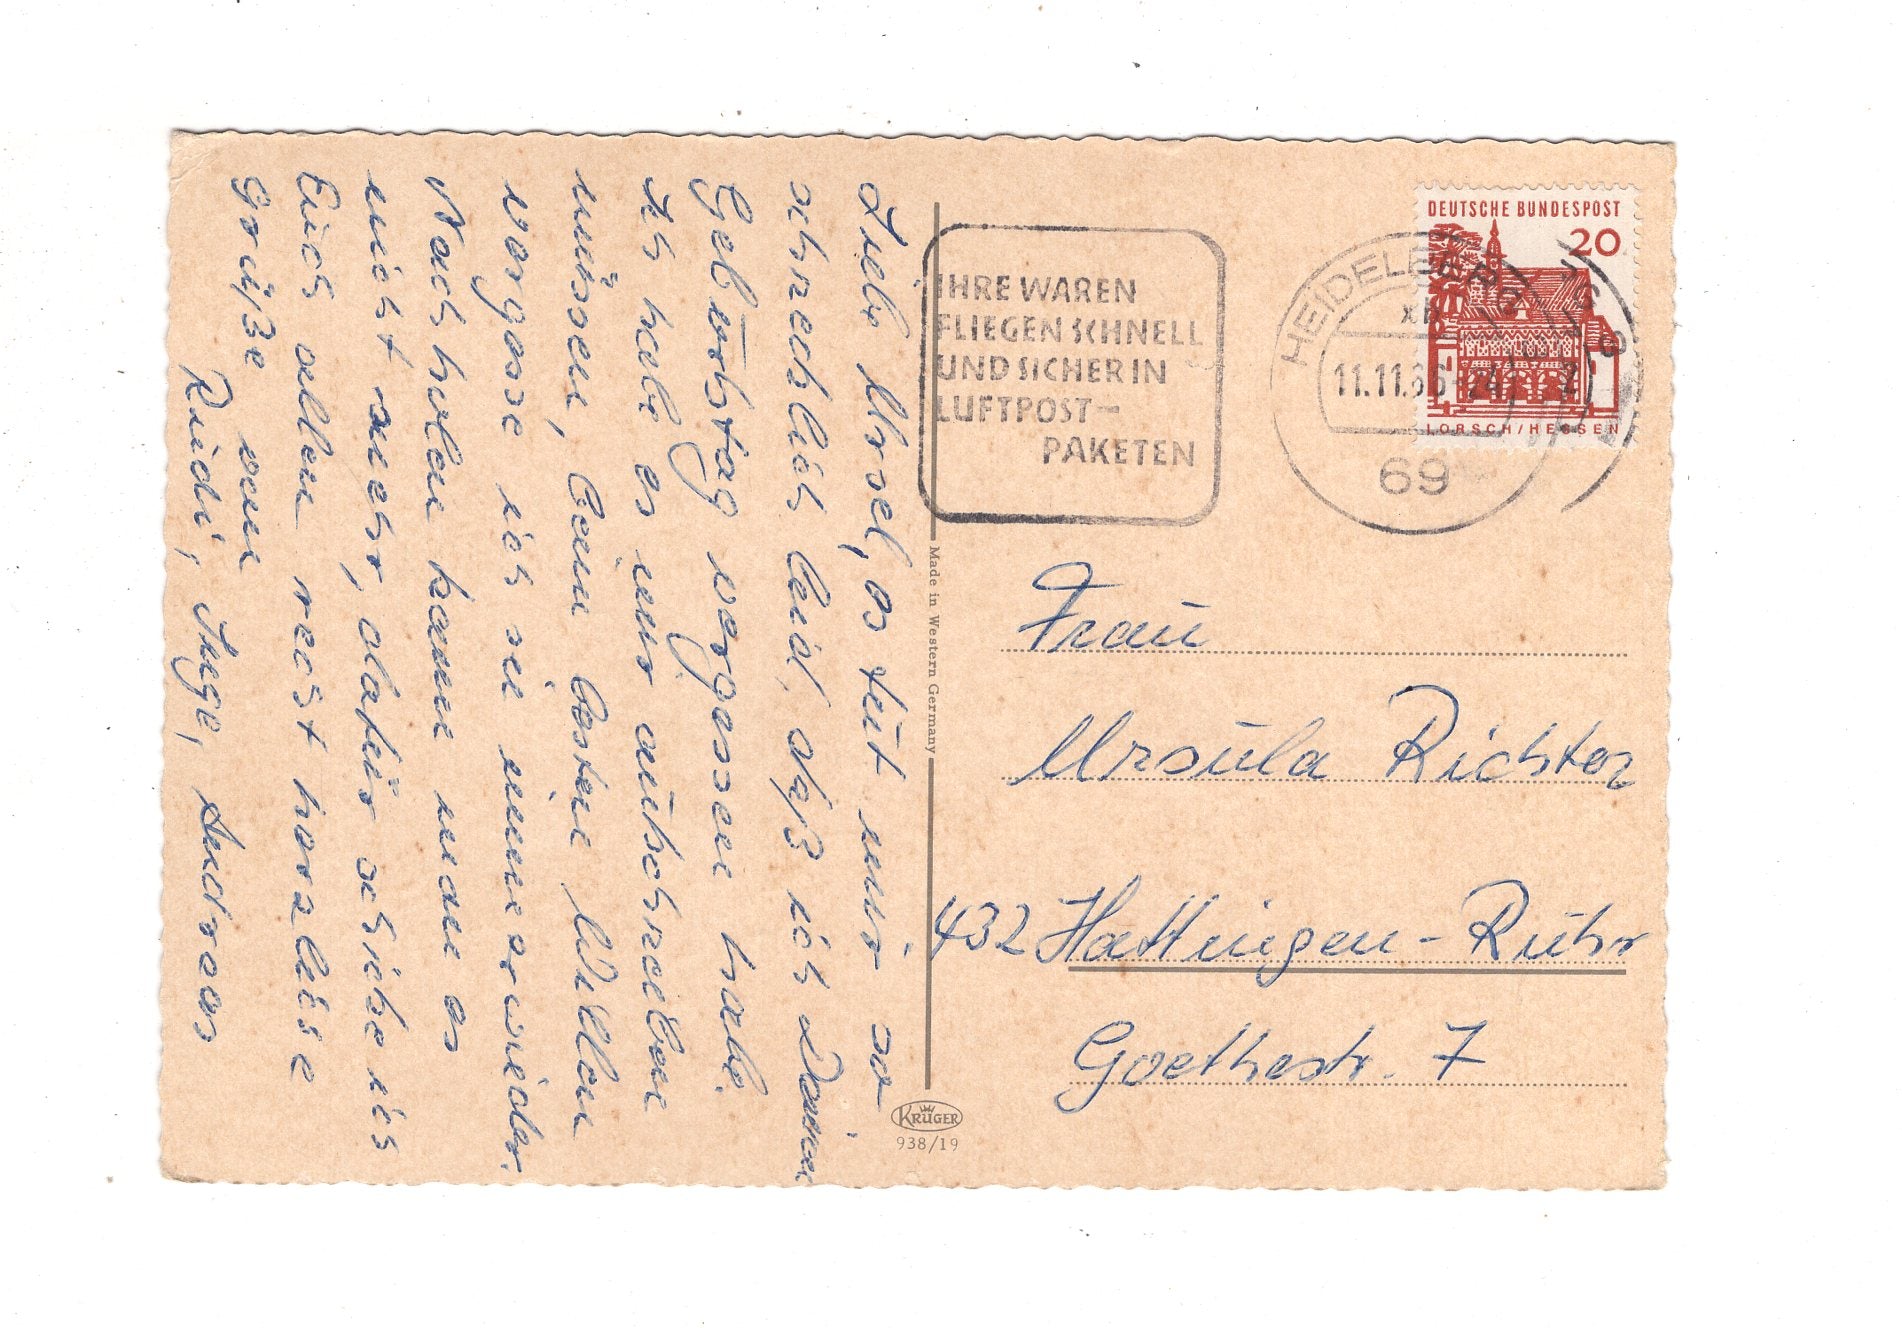 Liebe Ursel, es tut mir so
schrecklich leid, daß ich Deinen
Geburtstag vergessen habe.
Ich habe es mir aufschreiben
müssen, beim besten Willen
vergesse ich sie immer wieder.
Nachholen kann man es
nicht mehr, dafür schicke ich
Euch allen recht herzliche
Grüße von
Rudi, Inge, Andreas
IHRE WAREN
FLIEGEN SCHNELL
UND SICHER IN
LUFTPOST-
PAKETEN
HEIDELBERG
11.11.66
69
DEUTSCHE BUNDESPOST
20
LORSCH/HESSEN
Made in Western Germany
Frau
Ursula Richter
432 Hattingen-Ruhr
Goethestr. 7
KRÜGER
938/19